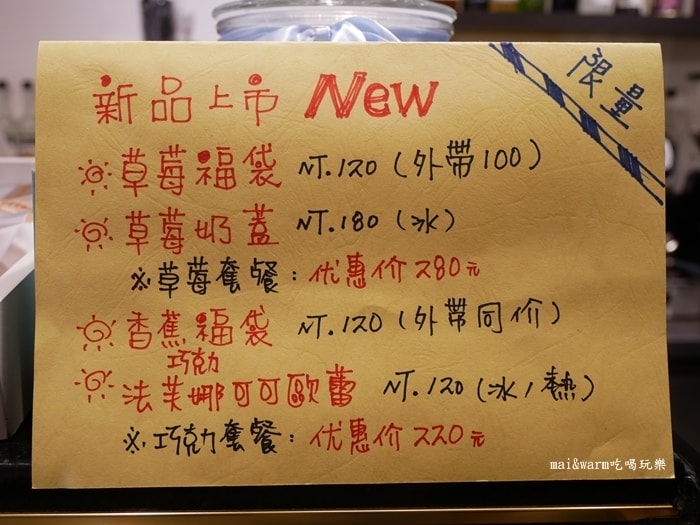 新品上市 New
限量
草莓福袋 NT.120 (外帶100)
草莓奶蓋 NT.180 (冰)
※草莓套餐：优惠价280元
香蕉福袋 NT.120 (外帶同价)
巧克力
法芙娜可可歐蕾 NT.120 (冰/熱)
※巧克力套餐：优惠价220元
mai&warm吃喝玩樂